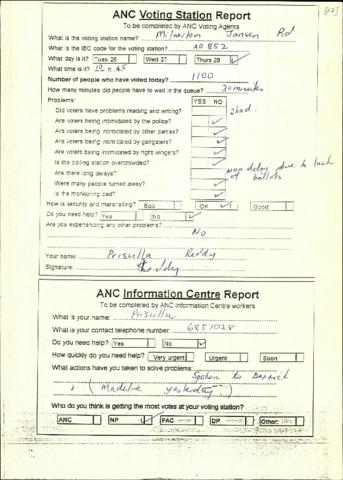 ANC Voting Station Report
To be completed by ANC Voting Agents
What is the voting station name? Milnerton Jansen Rd
What is the IEC code for the voting station? 10852
What day is it? Tues 26 Wed 27 Thurs 28 ✓
What time is it? 10 h 45
Number of people who have voted today? 1100
How many minutes did people have to wait in the queue? 30 minutes
Problems: YES NO
Did voters have problems reading and writing? 2 had.
Are voters being intimidated by the police? ✓
Are voters being intimidated by other parties? ✓
Are voters being intimidated by gangsters? ✓
Are voters being intimidated by right wingers? ✓
Is the polling station overcrowded? ✓
Are there long delays? was delay due to lack of ballots
Were many people turned away? ✓
Is the monitoring bad? ✓
How is security and marshalling? Bad OK ✓ Good
Do you need help? Yes No ✓
Are you experiencing any other problems?
No
Your name: Priscilla Reddy
Signature: Reddy
ANC Information Centre Report
To be completed by ANC Information Centre workers
What is your name? Priscilla
What is your contact telephone number: 6851028
Do you need help? Yes No ✓
How quickly do you need help? Very urgent Urgent Soon
What actions have you taken to solve problems:
Spoken to
( Madeline yesterday )
Who do you think is getting the most votes at your voting station?
ANC NP ✓ PAC DP Other: